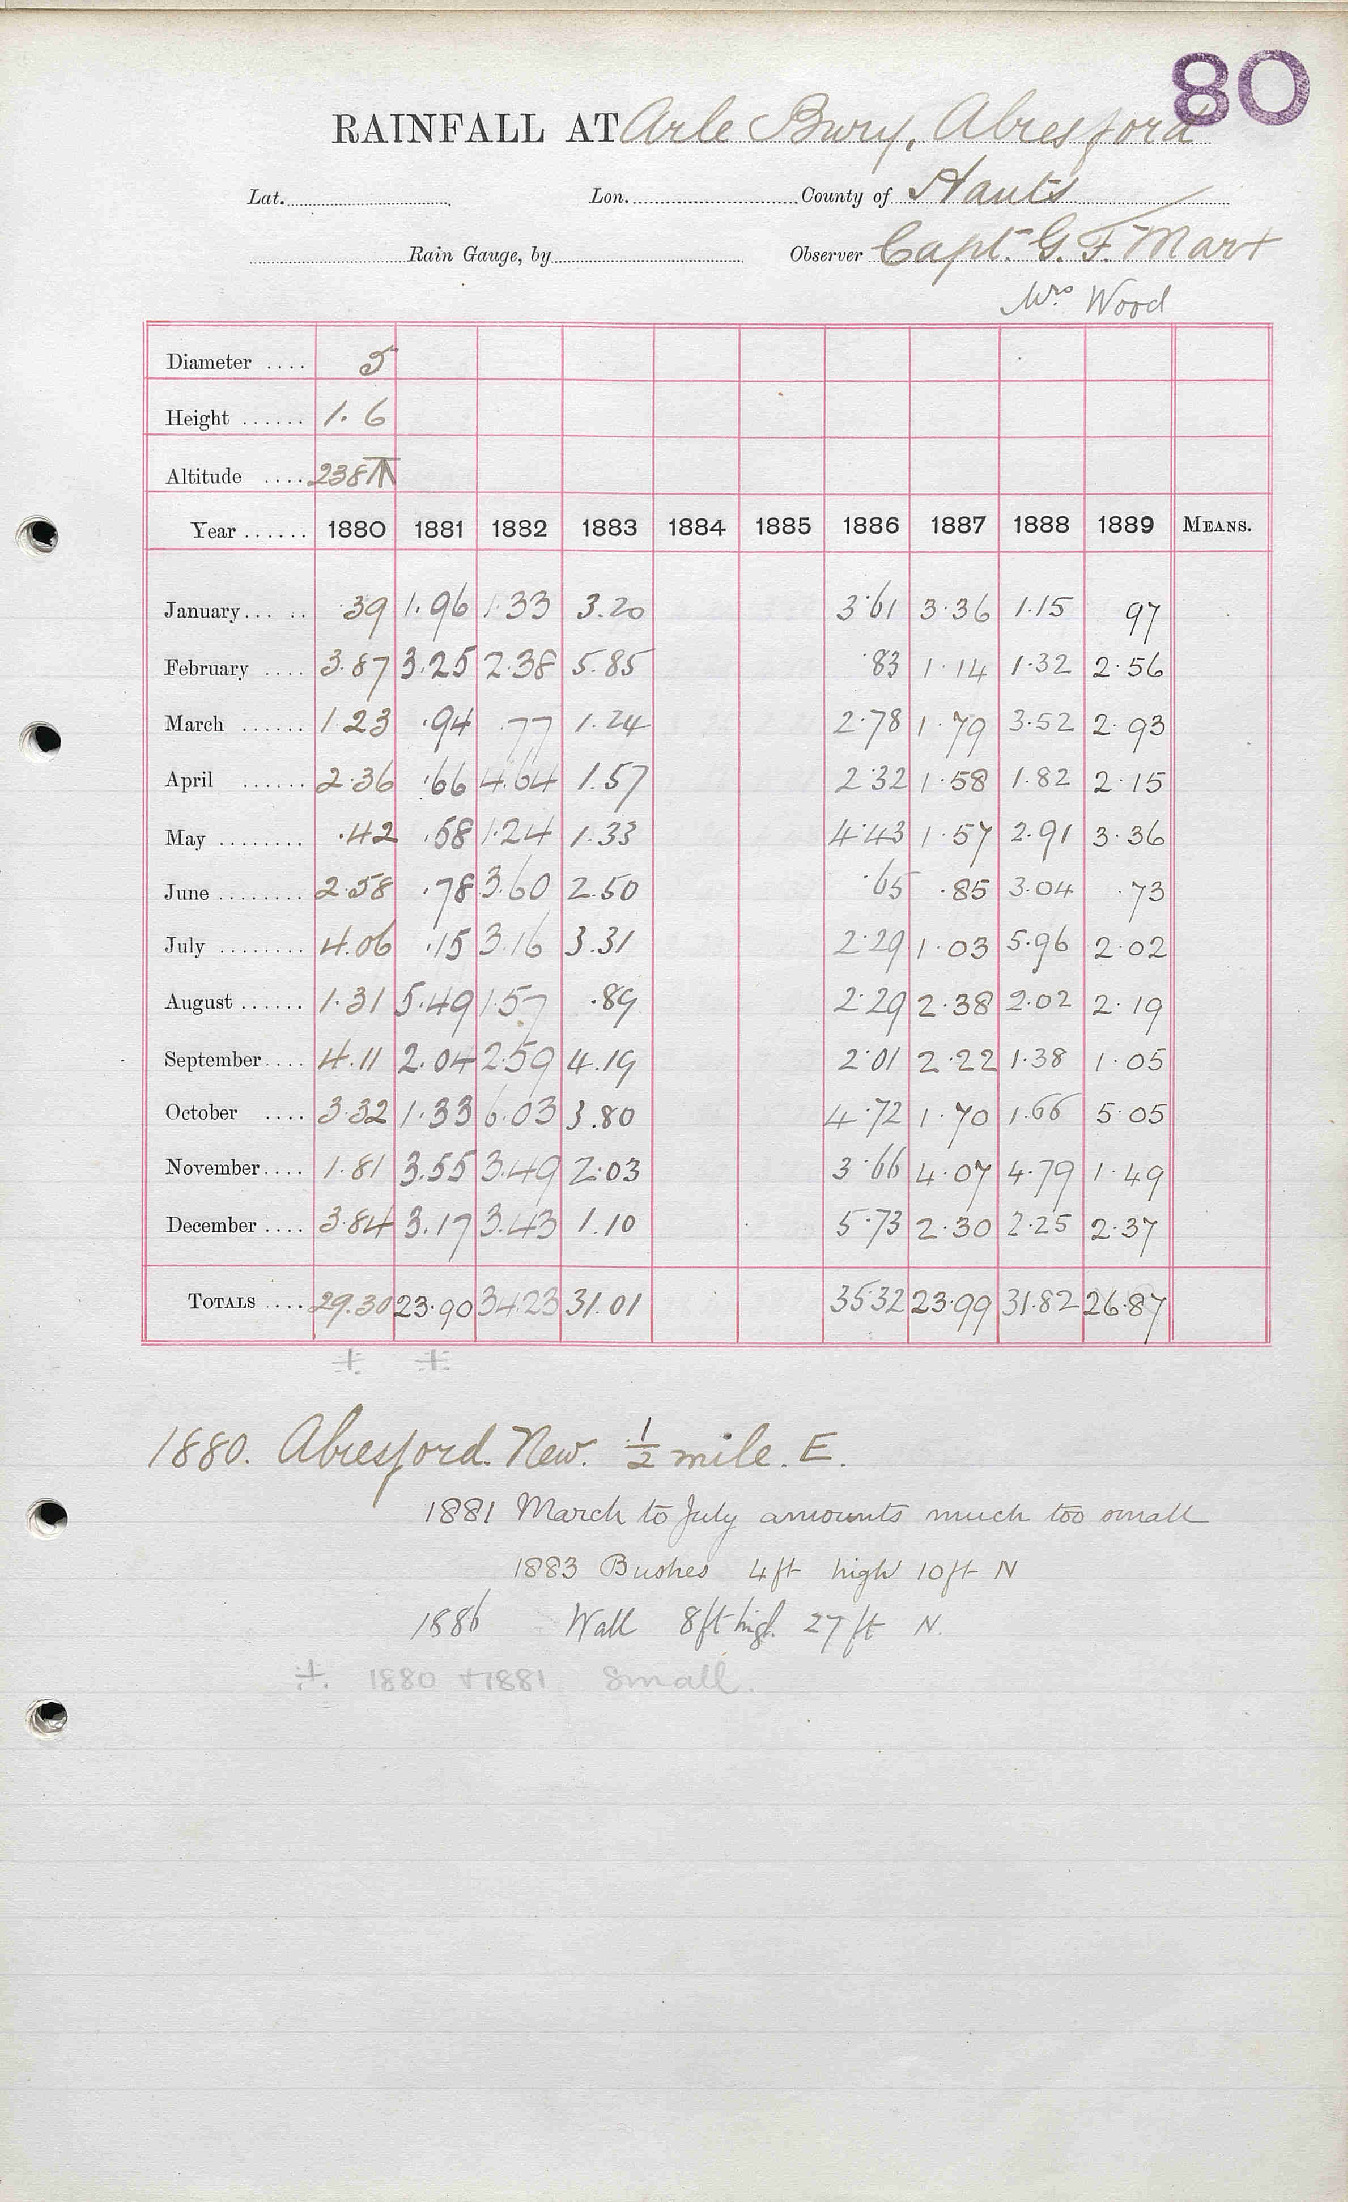 80
RAINFALL AT Arle Bury, Alresford
Lat. Lon. County of Hants
Rain Gauge, by Observer Capt. G. F. Marx
Mrs Wood
Diameter .... 5
Height ...... 1.6
Altitude .... 238
Year ...... 1880 1881 1882 1883 1884 1885 1886 1887 1888 1889 MEANS.
January ... .. .39 1.96 1.33 3.20 3.61 3.36 1.15 97
February .... 3.87 3.25 2.38 5.85 .83 1.14 1.32 2.56
March ...... 1.23 .94 .77 1.24 2.78 1.79 3.52 2.93
April ...... 2.36 .66 4.64 1.57 2.32 1.58 1.82 2.15
May ........ .42 .58 1.24 1.33 4.43 1.57 2.91 3.36
June ........ 2.58 .78 3.60 2.50 .65 .85 3.04 .73
July ........ 4.06 .15 3.16 3.31 2.29 1.03 5.96 2.02
August ...... 1.31 5.49 1.57 .89 2.29 2.38 2.02 2.19
September .... 4.11 2.04 2.59 4.19 2.01 2.22 1.38 1.05
October .... 3.32 1.33 6.03 3.80 4.72 1.70 1.66 5.05
November .... 1.81 3.55 3.49 2.03 3.66 4.07 4.79 1.49
December .... 3.84 3.17 3.43 1.10 5.73 2.30 2.25 2.37
TOTALS .... 29.30 23.90 34.23 31.01 35.32 23.99 31.82 26.87
1880. Alresford. New. ½ mile. E.
1881 March to July amounts much too small
1883 Bushes 4ft high 10ft N
1886 Wall 8ft high 27ft N.
‡ 1880 + 1881 small.